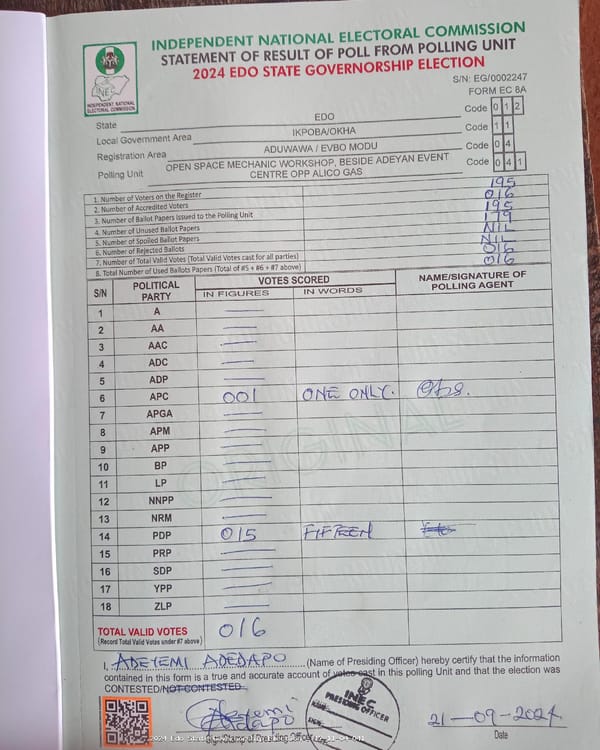 INDEPENDENT NATIONAL ELECTORAL COMMISSION
STATEMENT OF RESULT OF POLL FROM POLLING UNIT
2024 EDO STATE GOVERNORSHIP ELECTION
INEC
INDEPENDENT NATIONAL
ELECTORAL COMMISSION
S/N: EG/0002247
FORM EC 8A
State EDO Code 0 1 2
Local Government Area IKPOBA/OKHA Code 1 1
Registration Area ADUWAWA / EVBO MODU Code 0 4
Polling Unit OPEN SPACE MECHANIC WORKSHOP, BESIDE ADEYAN EVENT CENTRE OPP ALICO GAS Code 0 4 1
1. Number of Voters on the Register 195
2. Number of Accredited Voters 016
3. Number of Ballot Papers Issued to the Polling Unit 195
4. Number of Unused Ballot Papers 179
5. Number of Spoiled Ballot Papers NIL
6. Number of Rejected Ballots NIL
7. Number of Total Valid Votes (Total Valid Votes cast for all parties) 016
8. Total Number of Used Ballots Papers (Total of #5 + #6 + #7 above) 016
S/N POLITICAL PARTY VOTES SCORED NAME/SIGNATURE OF POLLING AGENT
IN FIGURES IN WORDS
1 A
2 AA
3 AAC
4 ADC
5 ADP
6 APC 001 ONE ONLY.
7 APGA
8 APM
9 APP
10 BP
11 LP
12 NNPP
13 NRM
14 PDP 015 FIFTEEN
15 PRP
16 SDP
17 YPP
18 ZLP
ORIGINAL
TOTAL VALID VOTES 016
(Record Total Valid Votes under #7 above)
I, ADEYEMI ADEDAPO (Name of Presiding Officer) hereby certify that the information
contained in this form is a true and accurate account of votes cast in this polling Unit and that the election was
CONTESTED/NOT CONTESTED.
Adeyemi
Adedapo
INEC
PRESIDING OFFICER
21-09-2024
Sign/Stamp of Presiding Officer
Date